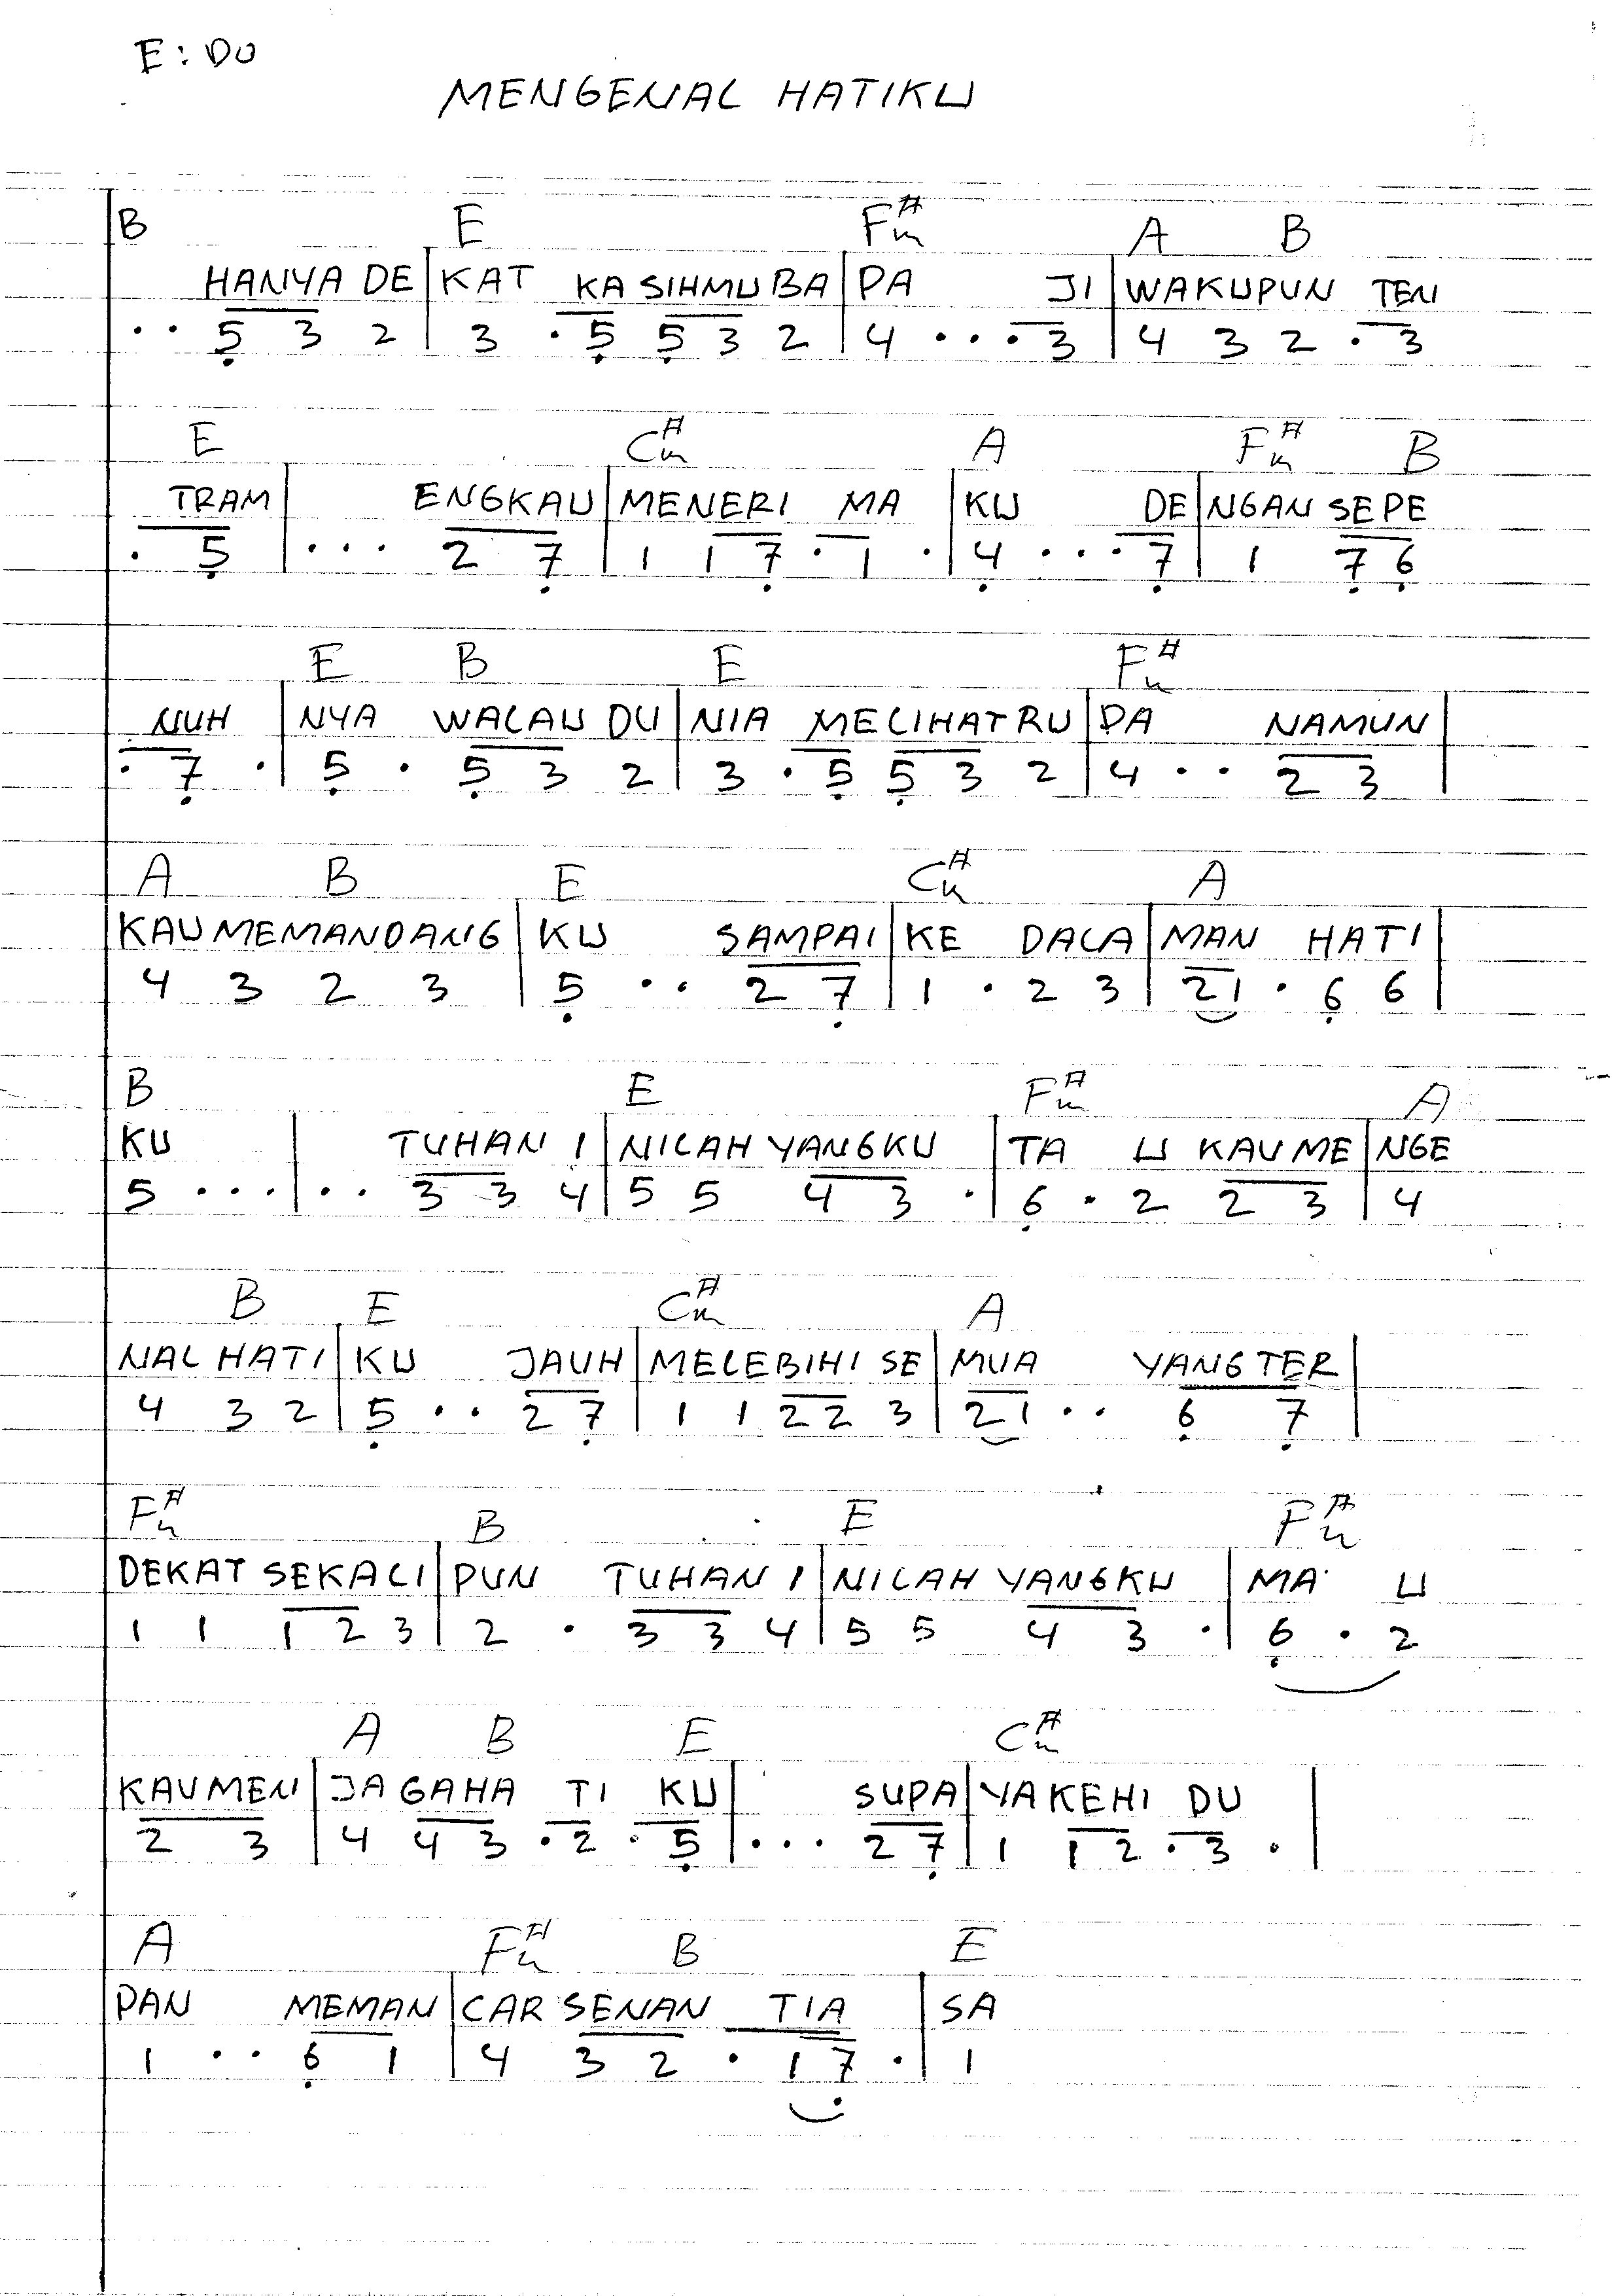 E : DO
MENGENAL HATIKU
B E F#m A B
HANYA DE | KAT KASIHMU BA | PA JI | WAKUPUN TEN
. . 5̣ 3 2 | 3 . 5̣ 5̣ 3 2 | 4 . . . 3 | 4 3 2 . 3
E C#m A F#m B
TRAM | ENGKAU | MENERI MA | KU DE | NGAN SEPE
. 5̣ | . . . 2 7̣ | 1 1 7̣ . 1 . | 4̣ . . . 7̣ | 1 7̣ 6̣
E B E F#m
NUH | NYA WALAU DU | NIA MELIHAT RU | PA NAMUN |
. 7̣ . | 5̣ . 5̣ 3 2 | 3 . 5̣ 5̣ 3 2 | 4 . . 2 3 |
A B E C#m A
KAU MEMANDANG | KU SAMPAI | KE DALA | MAN HATI |
4 3 2 3 | 5̣ . . 2 7̣ | 1 . 2 3 | 21 . 6̣ 6 |
B E F#m A
KU | TUHAN I | NILAH YANGKU | TA U KAU ME | NGE
5 . . . | . . 3 3 4 | 5 5 4 3 . | 6̣ . 2 2 3 | 4
B E C#m A
NAL HATI | KU JAUH | MELEBIHI SE | MUA YANG TER |
4 3 2 | 5̣ . . 2 7̣ | 1 1 2 2 3 | 21 . . 6̣ 7̣ |
F#m B E F#m
DEKAT SEKALI | PUN TUHAN I | NILAH YANGKU | MA U
1 1 1 2 3 | 2 . 3 3 4 | 5 5 4 3 . | 6̣ . 2
A B E C#m
KAU MEN | JAGAHA TI KU | SUPA | YA KEHI DU |
2 3 | 4 4 3 . 2 . 5̣ | . . . 2 7̣ | 1 1 2 . 3 . |
A F#m B E
PAN MEMAN | CAR SENAN TIA | SA
1 . . 6̣ 1 | 4 3 2 . 1 7̣ . | 1